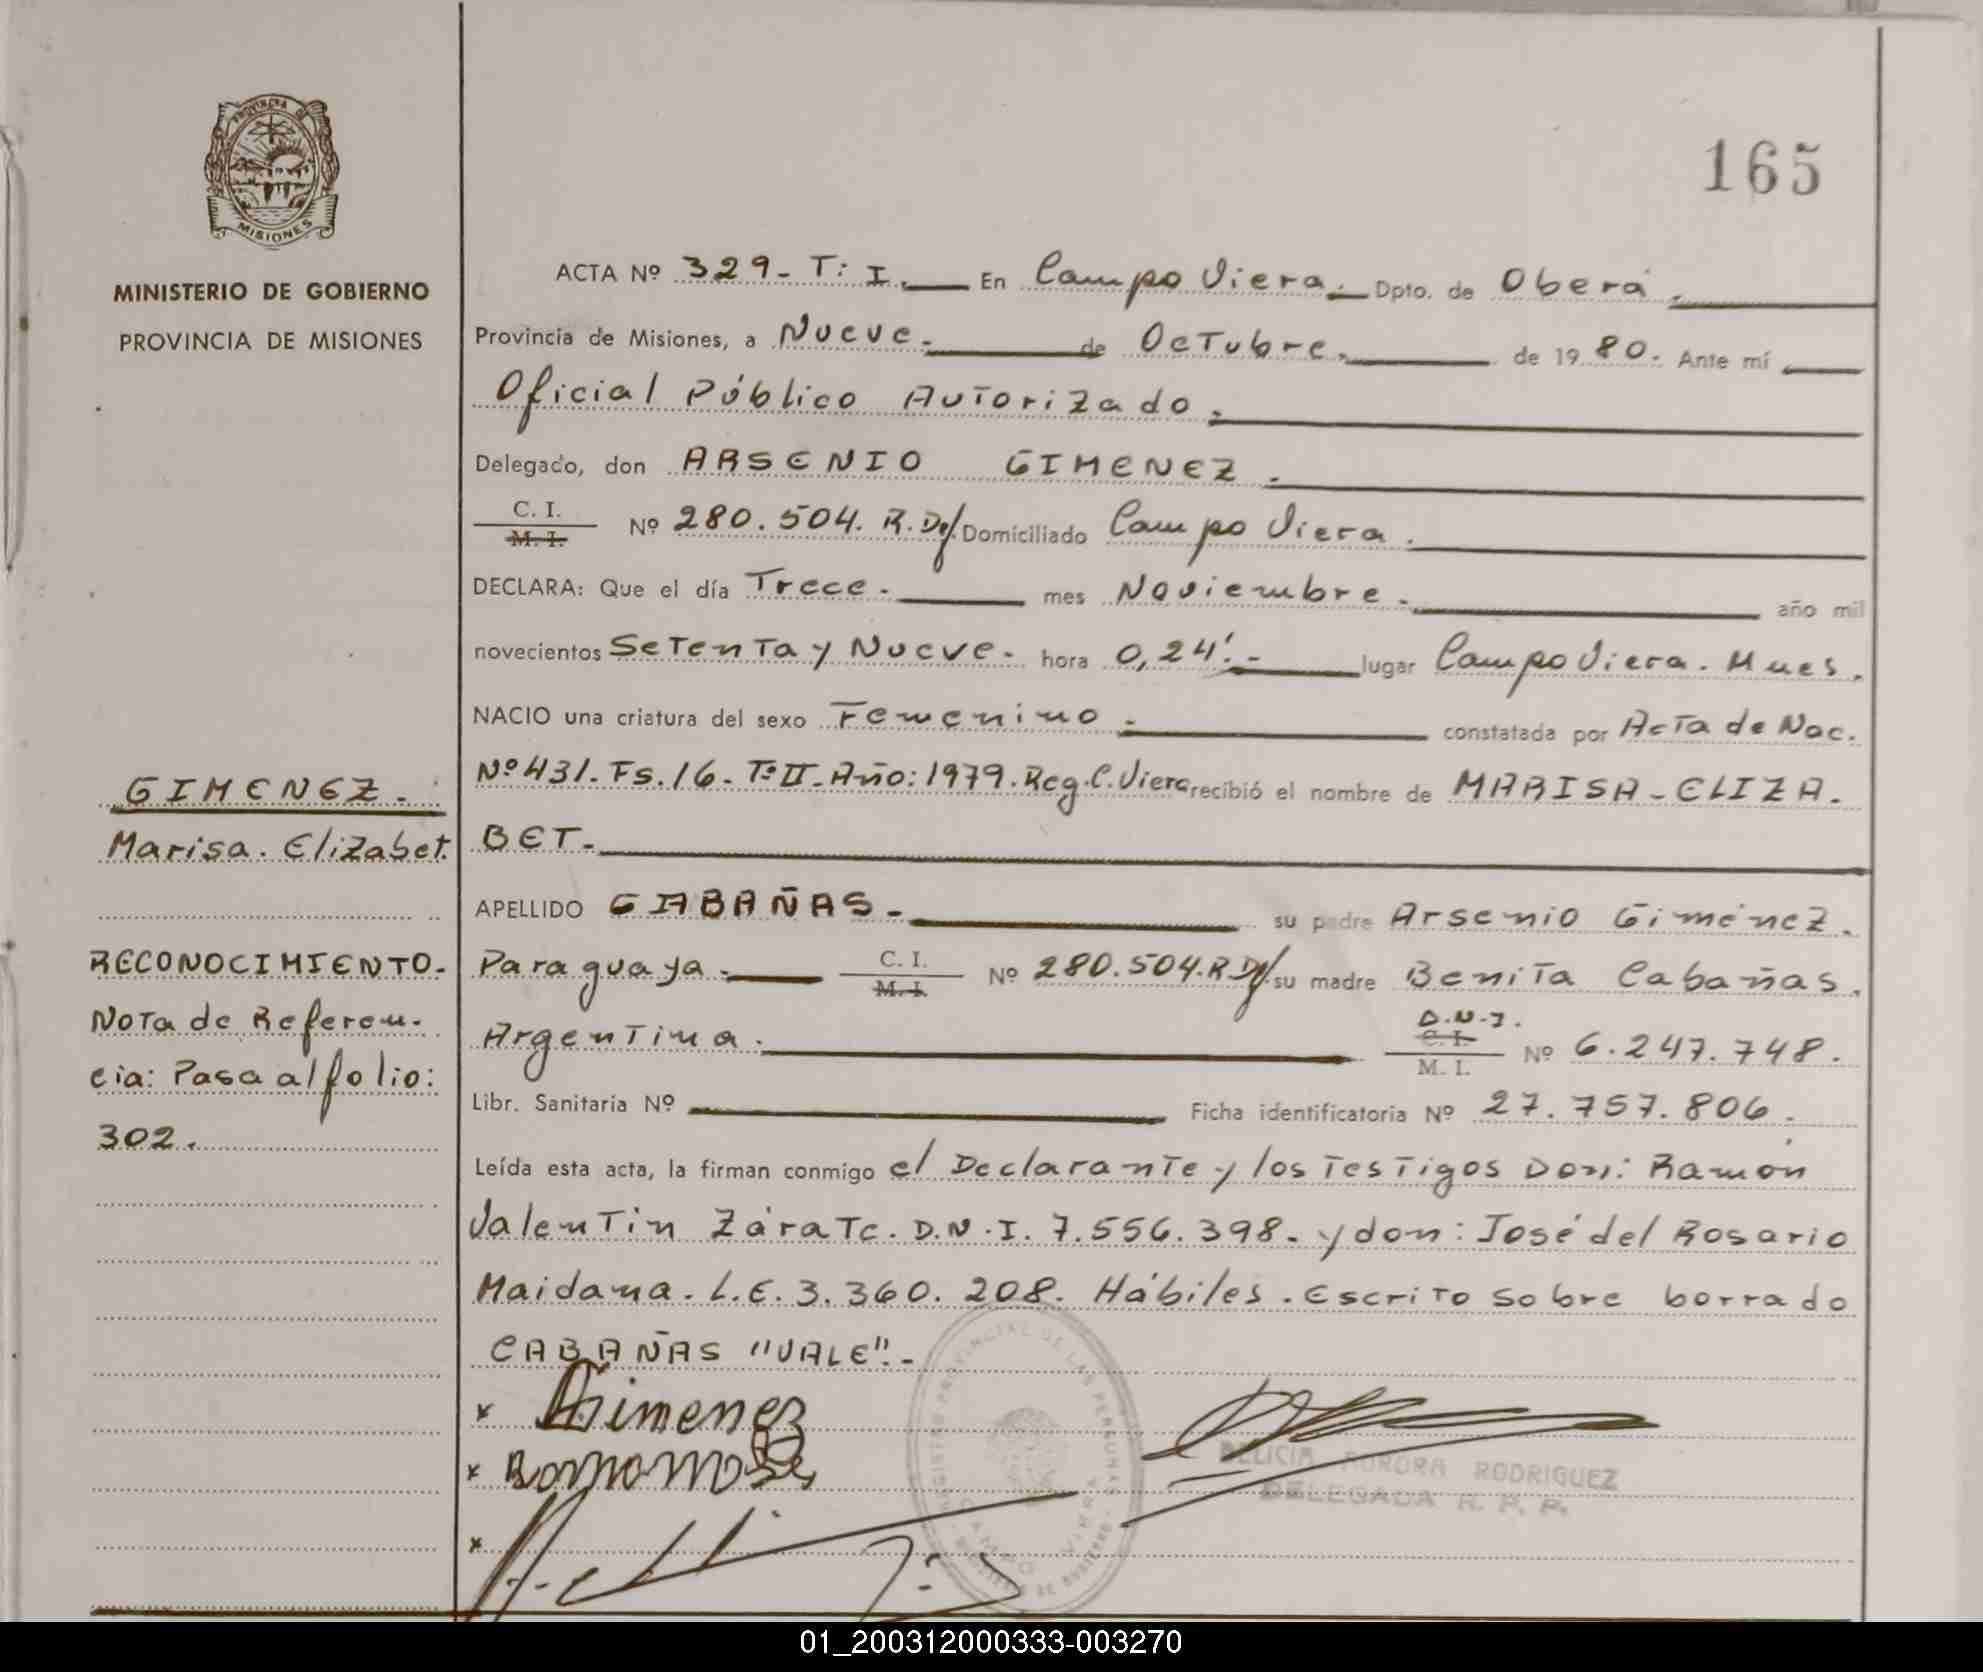 165
PROVINCIA DE
MISIONES
MINISTERIO DE GOBIERNO
PROVINCIA DE MISIONES
ACTA Nº 329- T: I. En Campo Viera. Dpto. de Oberá.
Provincia de Misiones, a Nueve. de Octubre. de 1980. Ante mí
Oficial Público Autorizado.
Delegado, don ARSENIO GIMENEZ.
C. I.
M. I. Nº 280.504. R. Dy. Domiciliado Campo Viera.
DECLARA: Que el día Trece. mes Noviembre. año mil
novecientos Setenta y Nueve. hora 0,24'.- lugar Campo Viera. Mnes.
NACIO una criatura del sexo Femenino. constatada por Acta de Nac.
Nº 431. Fs. 16. Tº II. Año: 1979. Reg. C. Viera recibió el nombre de MARISA-ELIZA.
BET.
APELLIDO CABAÑAS. su padre Arsenio Giménez.
Paraguaya. C. I.
M. I. Nº 280.504. R Dy. su madre Benita Cabañas.
Argentina. D.N.I.
C. I.
M. I. Nº 6.247.748.
Libr. Sanitaria Nº Ficha identificatoria Nº 27.757.806.
Leída esta acta, la firman conmigo el Declarante y los Testigos Don: Ramón
Valentin Zárate. D.N.I. 7.556.398. y don: José del Rosario
Maidana. L.E. 3.360.208. Hábiles. Escrito sobre borrado
CABAÑAS "VALE".-
GIMENEZ.
Marisa. Elizabet.
RECONOCIMIENTO.
Nota de Referen.
cia: Pasa al folio:
302.
x Gimenez
x
x
REGISTRO PROVINCIAL DE LAS PERSONAS
CAMPO VIERA
DELICIA AURORA RODRIGUEZ
DELEGADA R. P. P.
01_200312000333-003270